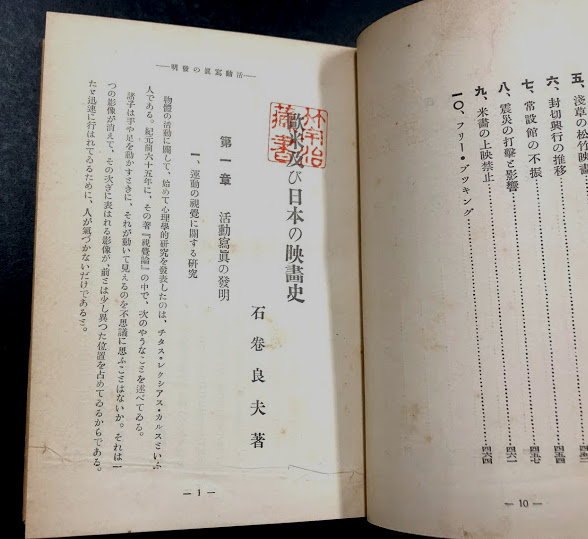 五、淺草の松竹映畫
六、封切興行の推移……四五四
七、常設館の不振……四五七
八、震災の打擊と影響……四六一
九、米畫の上映禁止……四六四
一〇、フリー・ブツキング
— 10 —
—活動寫眞の發明—
歐米及び日本の映畫史
藏書
石卷良夫著
第一章 活動寫眞の發明
一、運動の視覺に關する硏究
物體の活動に關して、始めて心理學的硏究を發表したのは、チタス・レクシアス・カルスといふ
人である。紀元前六十五年に、その著『視覺論』の中で、次のやうなことを述べてゐる。
諸子は手や足を動かすときに、それが動いて見えるのを不思議に思ふことはないか。それは一
つの影像が消えて、その次ぎに表はれる影像が、前とは少し異つた位置を占めてゐるからである。
たゞ迅速に行はれてゐるために、人が氣づかないだけであると。
— 1 —